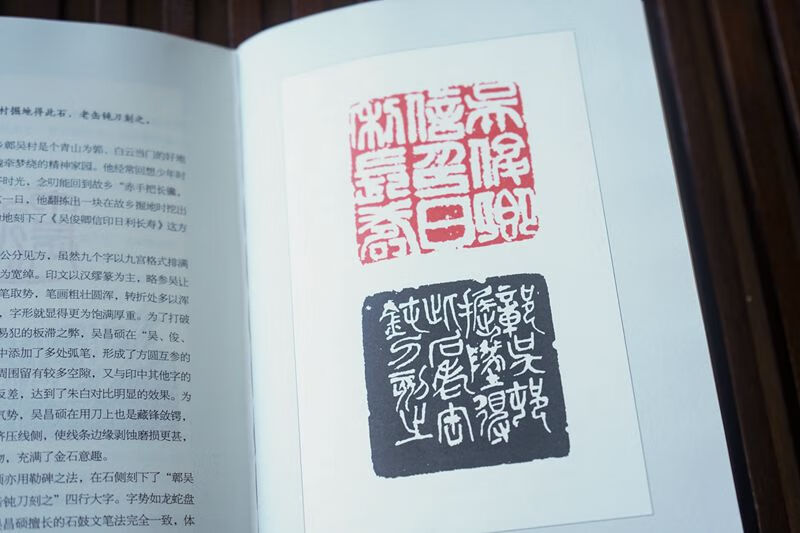 村掘地得此石，老缶钝刀刻之。
乡鄣吴村是个青山为郭、白云当门的好地
魂牵梦绕的精神家园。他经常回想少年时
时光，念叨能回到故乡“赤手把长镵，
一日，他翻拣出一块在故乡掘地时挖出
地刻下了《吴俊卿信印日利长寿》这方
公分见方，虽然九个字以九宫格式排满
为宽绰。印文以汉缪篆为主，略参吴让
笔取势，笔画粗壮圆浑，转折处多以浑
，字形就显得更为饱满厚重。为了打破
易犯的板滞之弊，吴昌硕在“吴、俊、
中添加了多处弧笔，形成了方圆互参的
周围留有较多空隙，又与印中其他字的
反差，达到了朱白对比明显的效果。为
气势，吴昌硕在用刀上也是藏锋敛锷，
挤压线侧，使线条边缘剥蚀磨损更甚，
物，充满了金石意趣。
亦用勒碑之法，在石侧刻下了“鄣吴
缶钝刀刻之”四行大字。字势如龙蛇盘
吴昌硕擅长的石鼓文笔法完全一致，体
吳俊卿
信印日
利長壽
鄣吳邨
掘墬得
此石老缶
鈍刀刻之